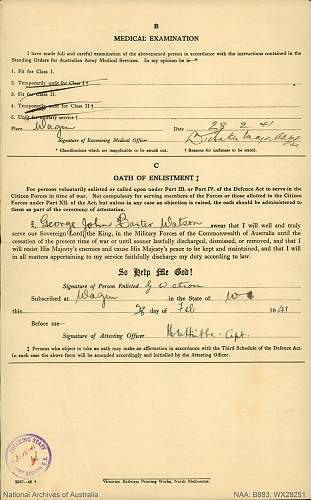 B
MEDICAL EXAMINATION
I have made full and careful examination of the abovenamed person in accordance with the instructions contained in
Standing Orders for Australian Army Medical Services. In my opinion he is—*
1. Fit for Class I.
2. Temporarily unfit for Class I †
3. Fit for Class II.
4. Temporarily unfit for Class II †.
5. Unfit for military service †
Place Wagin Date 28 2 41
Signature of Examining Medical Officer
* Classifications which are inapplicable to be struck out. † Reasons for unfitness to be stated.
C
OATH OF ENLISTMENT ‡
For persons voluntarily enlisted or called upon under Part III. or Part IV. of the Defence Act to serve in the
Citizen Forces in time of war. Not compulsory for serving members of the Forces or those allotted to the Citizen
Forces under Part XII. of the Act, but unless in any case an objection is raised, the oath should be administered to
them as part of the ceremony of attestation.
I, George John Baxter Watson swear that I will well and truly
serve our Sovereign Lord the King, in the Military Forces of the Commonwealth of Australia until the
cessation of the present time of war or until sooner lawfully discharged, dismissed, or removed, and that I will
resist His Majesty's enemies and cause His Majesty's peace to be kept and maintained, and that I will
in all matters appertaining to my service faithfully discharge my duty according to law.
So Help Me God!
Signature of Person Enlisted G Watson
Subscribed at Wagin in the State of W
this 28 day of Feb 1941
Before me—
Signature of Attesting Officer Capt.
‡ Persons who object to take an oath may make an affirmation in accordance with the Third Schedule of the Defence Act.
In each case the above form will be amended accordingly and initialled by the Attesting Officer.
Victorian Railways Printing Works, North Melbourne.
National Archives of Australia
NAA: B883, WX28251